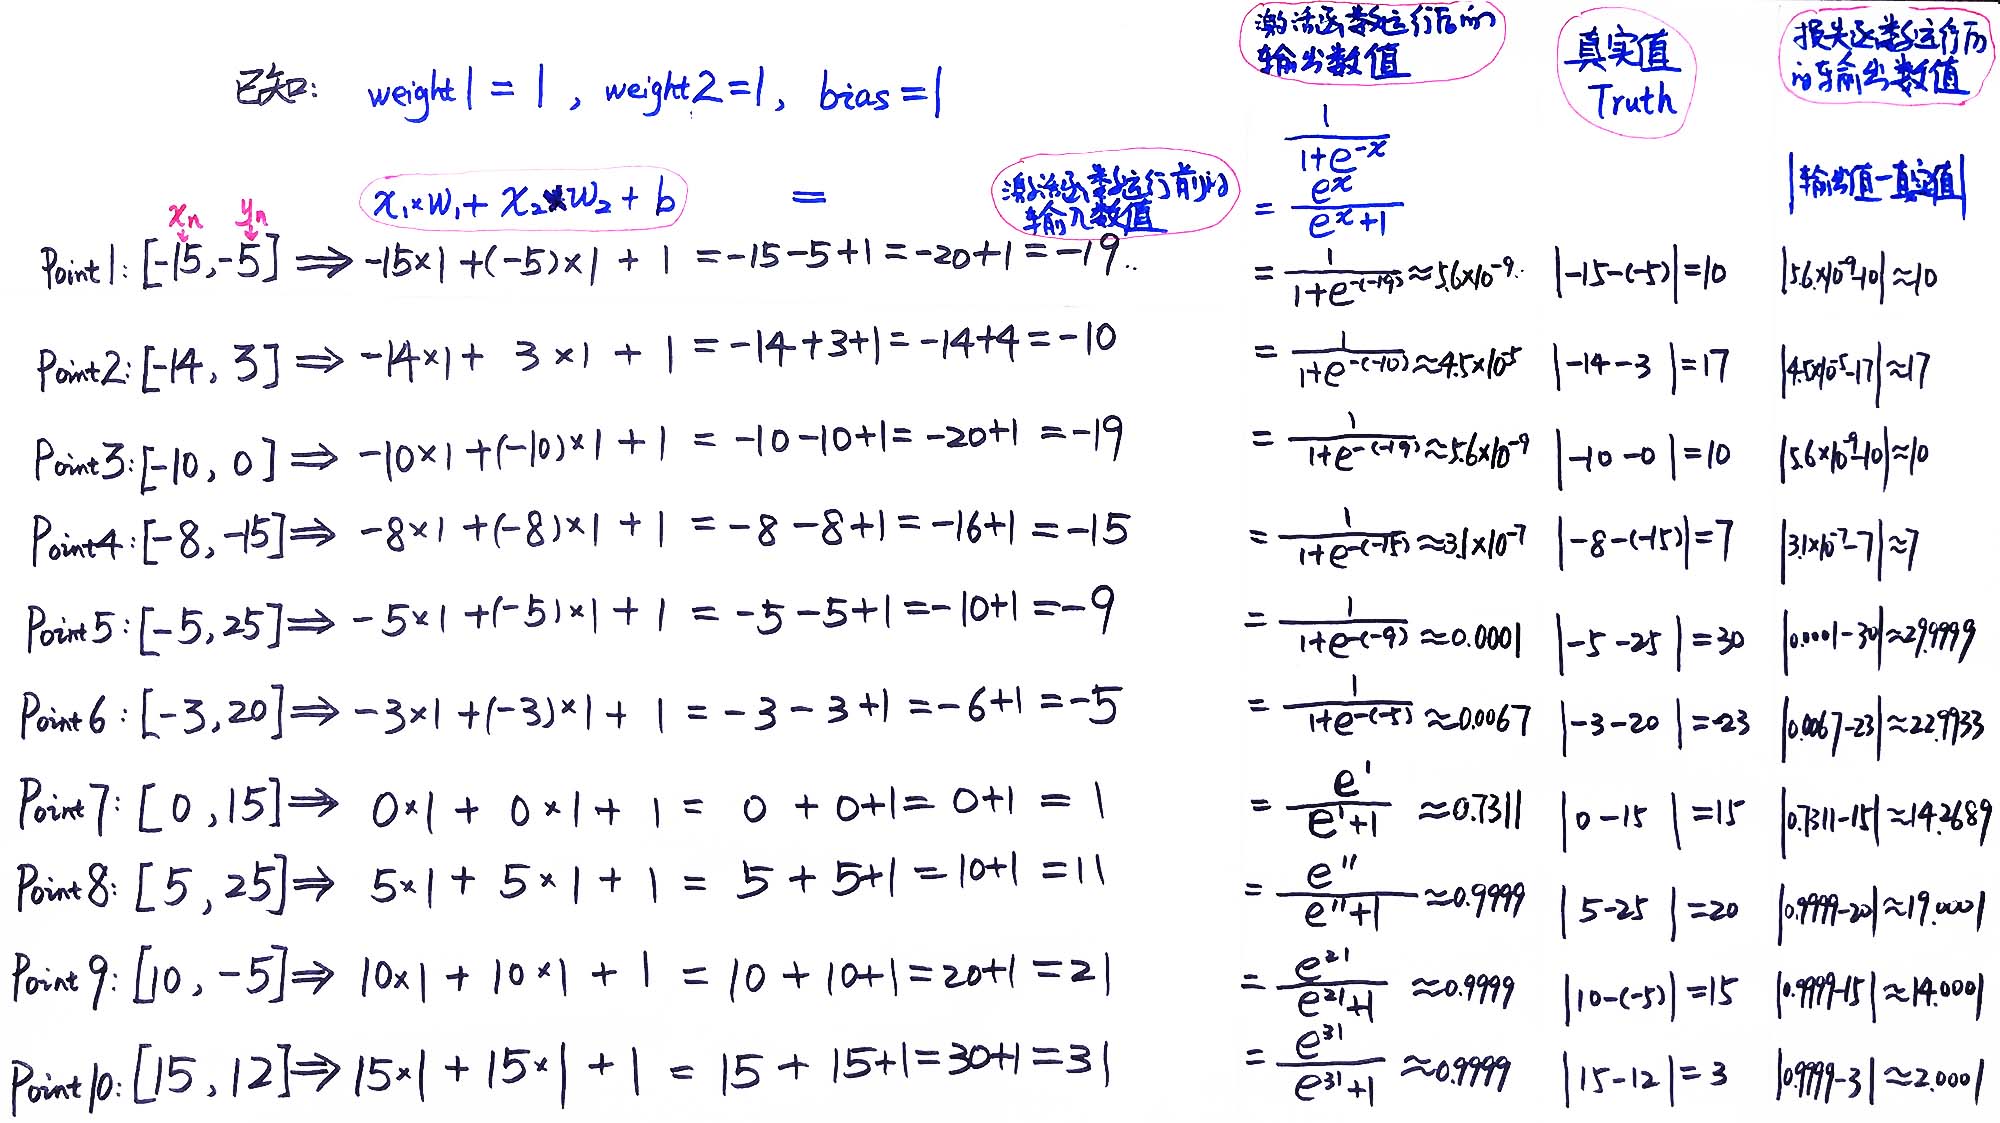 激活函数运行后的
输出数值
真实值
Truth
损失函数运行后
的输出数值
已知: weight1 = 1 , weight2=1, bias=1
1/(1+e^-x)
xn yn
x₁×w₁+ x₂×w₂ + b =
激活函数运行前的
输入数值
= e^x/(e^x+1)
|输出值-真实值|
Point1: [-15,-5] ⇒ -15×1+(-5)×1 + 1 =-15-5+1=-20+1=-19.. = 1/(1+e^-(-19)) ≈5.6×10^-9.. |-15-(-5)|=10 |5.6×10^-9-10|≈10
Point2: [-14, 3] ⇒ -14×1+ 3×1 + 1 =-14+3+1=-14+4=-10 = 1/(1+e^-(-10)) ≈4.5×10^-5 |-14-3|=17 |4.5×10^-5-17|≈17
Point3: [-10, 0] ⇒ -10×1+(-10)×1+1 = -10-10+1= -20+1 =-19 = 1/(1+e^-(-19)) ≈5.6×10^-9 |-10-0|=10 |5.6×10^-9-10|≈10
Point4: [-8,-15]⇒ -8×1 +(-8)×1 + 1 = -8-8+1=-16+1=-15 = 1/(1+e^-(-15)) ≈3.1×10^-7 |-8-(-15)|=7 |3.1×10^-7-7|≈7
Point5: [-5,25]⇒ -5×1 +(-5)×1+1 = -5-5+1=-10+1=-9 = 1/(1+e^-(-9)) ≈0.0001 |-5-25|=30 |0.0001-30|≈29.9999
Point6: [-3,20]⇒ -3×1+(-3)×1+ 1 = -3-3+1=-6+1=-5 = 1/(1+e^-(-5)) ≈0.0067 |-3-20|=23 |0.0067-23|≈22.9933
Point7: [0,15]⇒ 0×1+ 0×1+ 1 = 0 + 0+1= 0+1 = 1 = e^1/(e^1+1) ≈0.7311 |0-15|=15 |0.7311-15|≈14.2689
Point8: [5,25]⇒ 5×1+ 5×1+ 1 = 5 + 5+1=10+1=11 = e^11/(e^11+1) ≈0.9999 |5-25|=20 |0.9999-20|≈19.0001
Point9: [10,-5]⇒ 10×1+ 10×1 + 1 = 10 + 10+1=20+1=21 = e^21/(e^21+1) ≈0.9999 |10-(-5)|=15 |0.9999-15|≈14.0001
Point10: [15,12]⇒ 15×1+15×1+1 = 15 + 15+1=30+1=31 = e^31/(e^31+1) ≈0.9999 |15-12|=3 |0.9999-3|≈2.0001